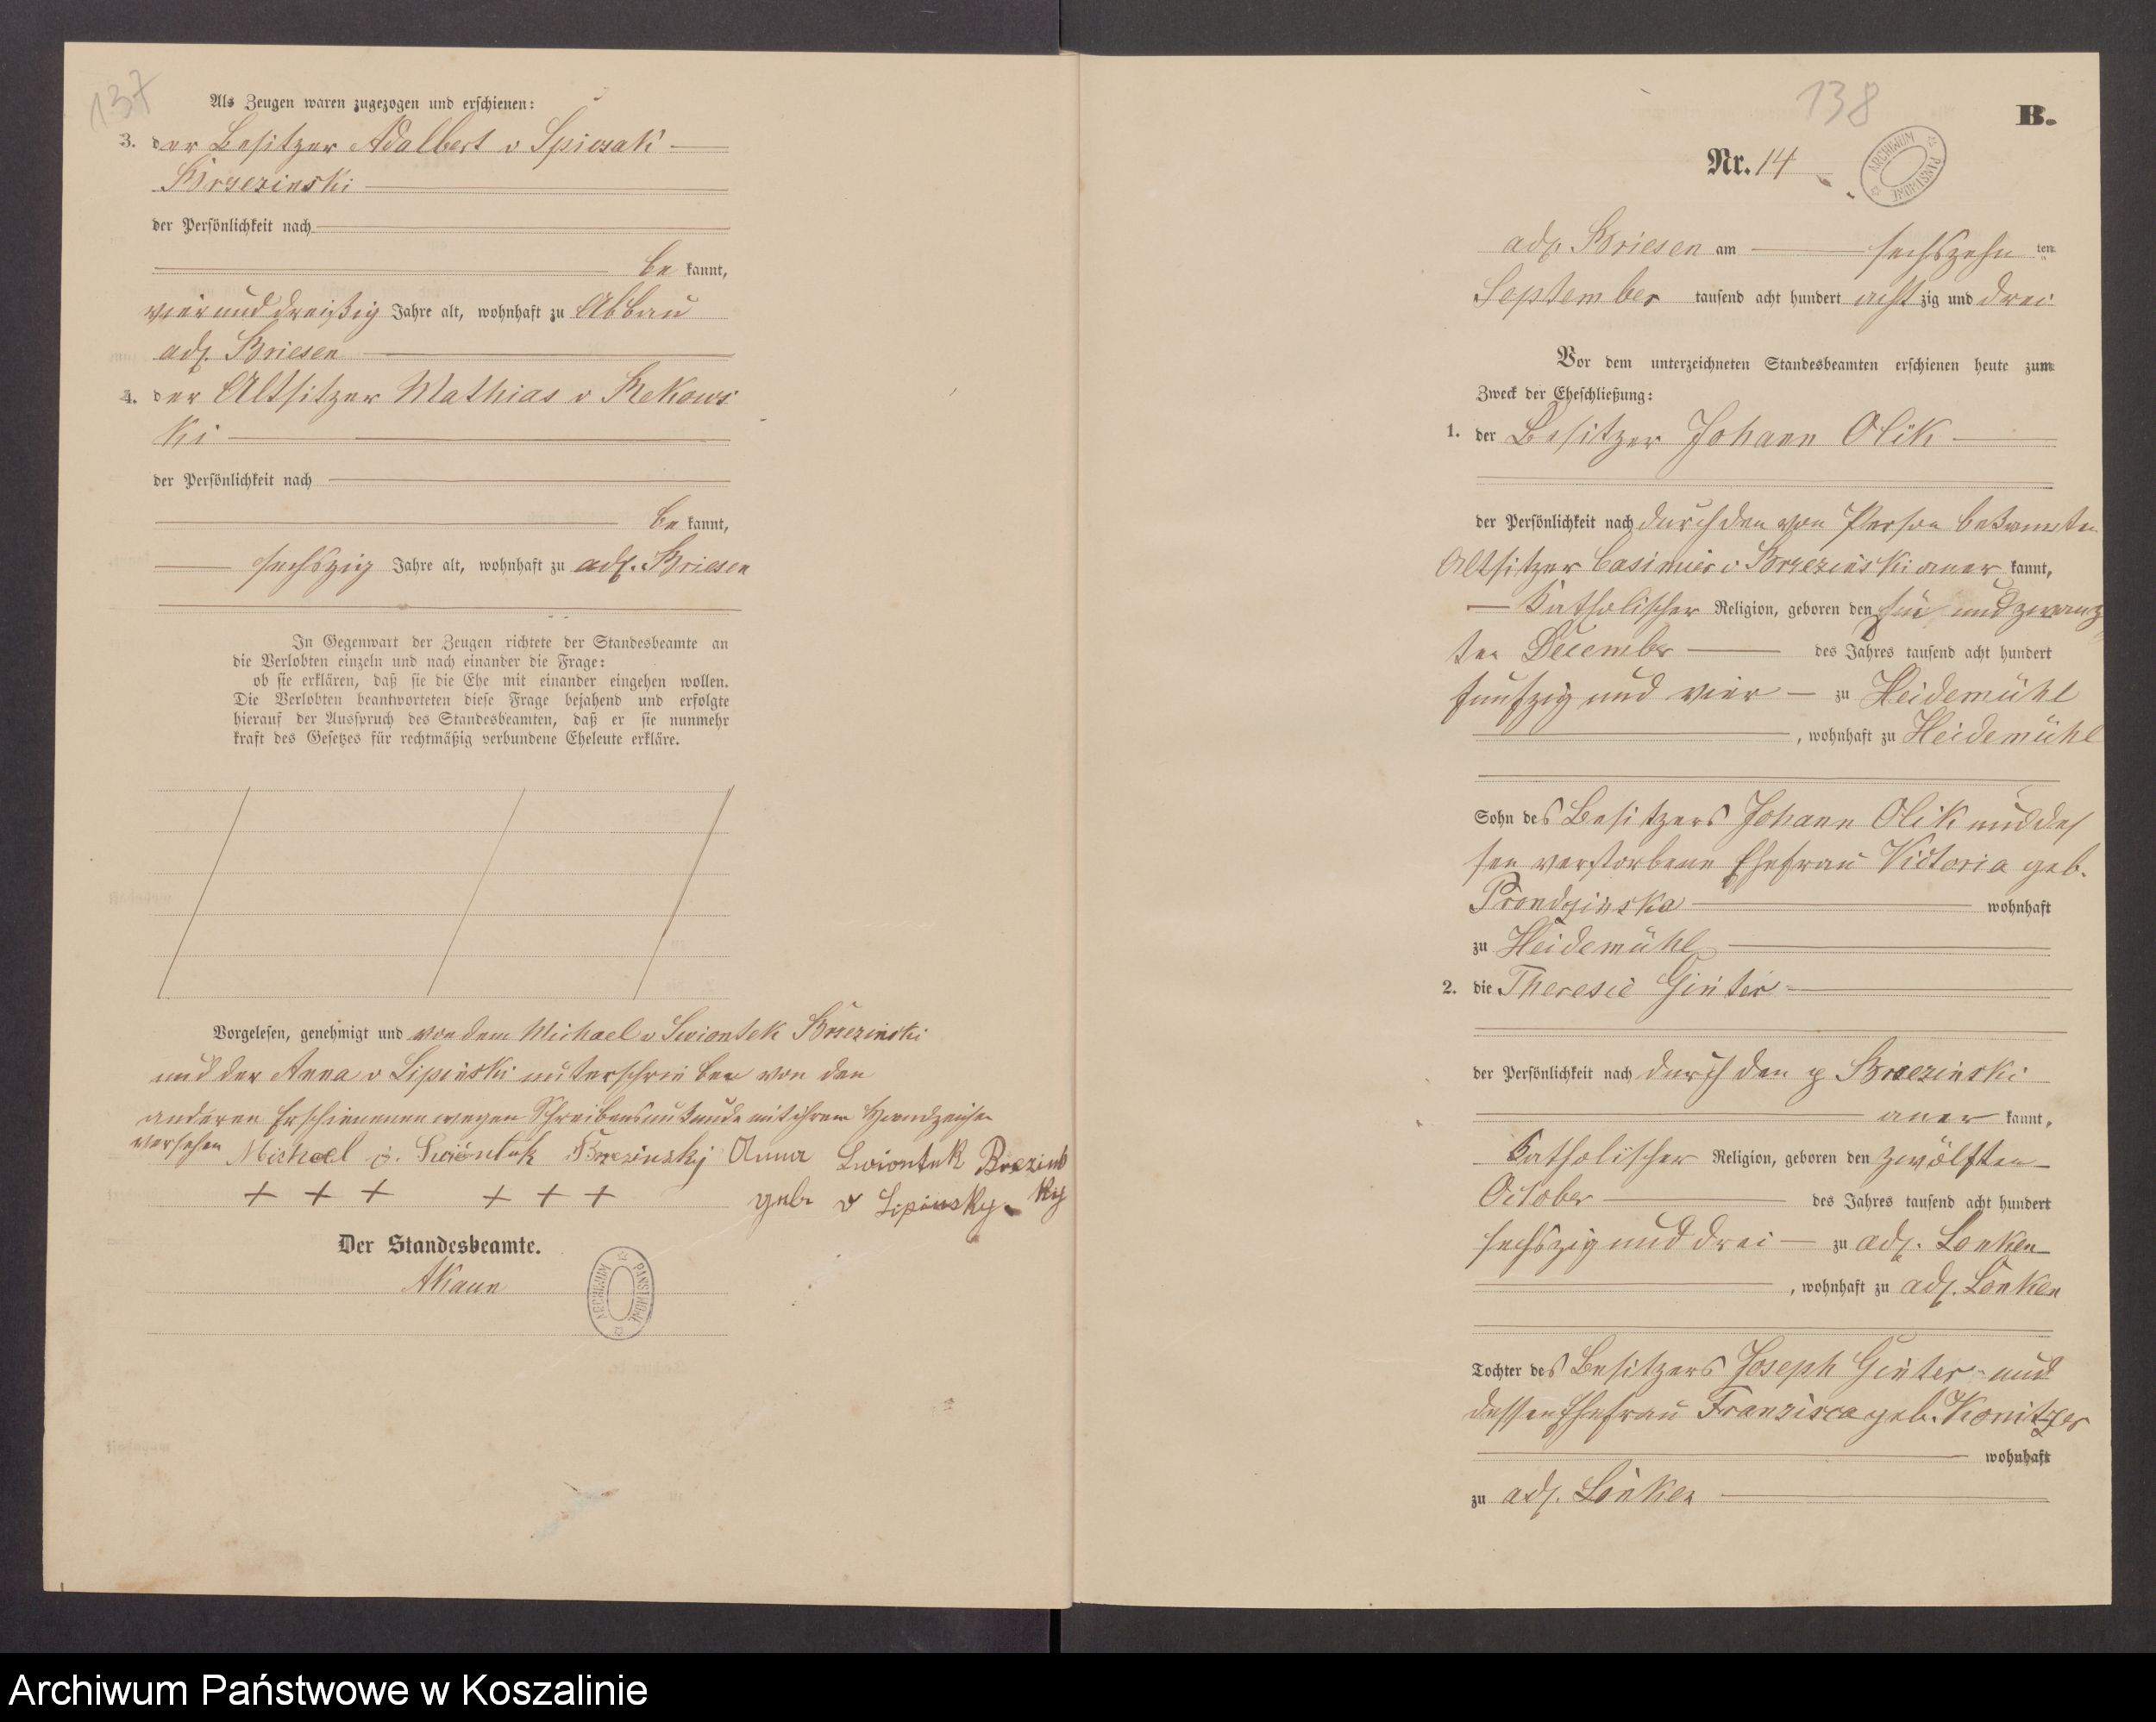 137
Als Zeugen waren zugezogen und erschienen:
3. der Besitzer Adalbert v Spiczak
Brzezinski
der Persönlichkeit nach
be kannt,
vier und dreißig Jahre alt, wohnhaft zu Abbau
adl. Briesen
4. der Altsitzer Mathias v Rekows
ki
der Persönlichkeit nach
be kannt,
sechszig Jahre alt, wohnhaft zu adl. Briesen
In Gegenwart der Zeugen richtete der Standesbeamte an
die Verlobten einzeln und nach einander die Frage:
ob sie erklären, daß sie die Ehe mit einander eingehen wollen.
Die Verlobten beantworteten diese Frage bejahend und erfolgte
hierauf der Ausspruch des Standesbeamten, daß er sie nunmehr
kraft des Gesetzes für rechtmäßig verbundene Eheleute erkläre.
Vorgelesen, genehmigt und von dem Michael v Swiontek Brzezinski
und der Anna v Lipinski unterschrieben von den
anderen Erschienenen wegen Schreibensunkunde mit ihrem Handzeichen
versehen Michael v. Swiontek Brzezinskj Anna Swiontek Brezins
+ + + + + + geb v Lipinsky ky
Der Standesbeamte.
AKaun
ARCHIWUM PAŃSTWOWE
138
B.
Nr. 14
ARCHIWUM PAŃSTWOWE
adl. Briesen am sechszehn ten
September tausend acht hundert acht zig und drei
Vor dem unterzeichneten Standesbeamten erschienen heute zum
Zweck der Eheschließung:
1. der Besitzer Johann Olik
der Persönlichkeit nach durch den von Person bekannten
Altsitzer Casimir v Brzezinski aner kannt,
Katholischer Religion, geboren den und zwanzig
ten December des Jahres tausend acht hundert
funfzig und vier zu Heidemühl
, wohnhaft zu Heidemühl
Sohn des Besitzers Johann Olik und des
sen verstorbene Ehefrau Victoria geb.
Prondzinska wohnhaft
zu Heidemühl
2. die Theresie Ginter
der Persönlichkeit nach durch den p Brzezinski
aner kannt,
Katholischer Religion, geboren den zwölften
October des Jahres tausend acht hundert
sechszig und drei zu adl. Lonken
, wohnhaft zu adl. Lonken
Tochter des Besitzers Joseph Ginter und
dessen Ehefrau Franzisca geb. Konitzer
wohnhaft
zu adl. Lonken
Archiwum Państwowe w Koszalinie